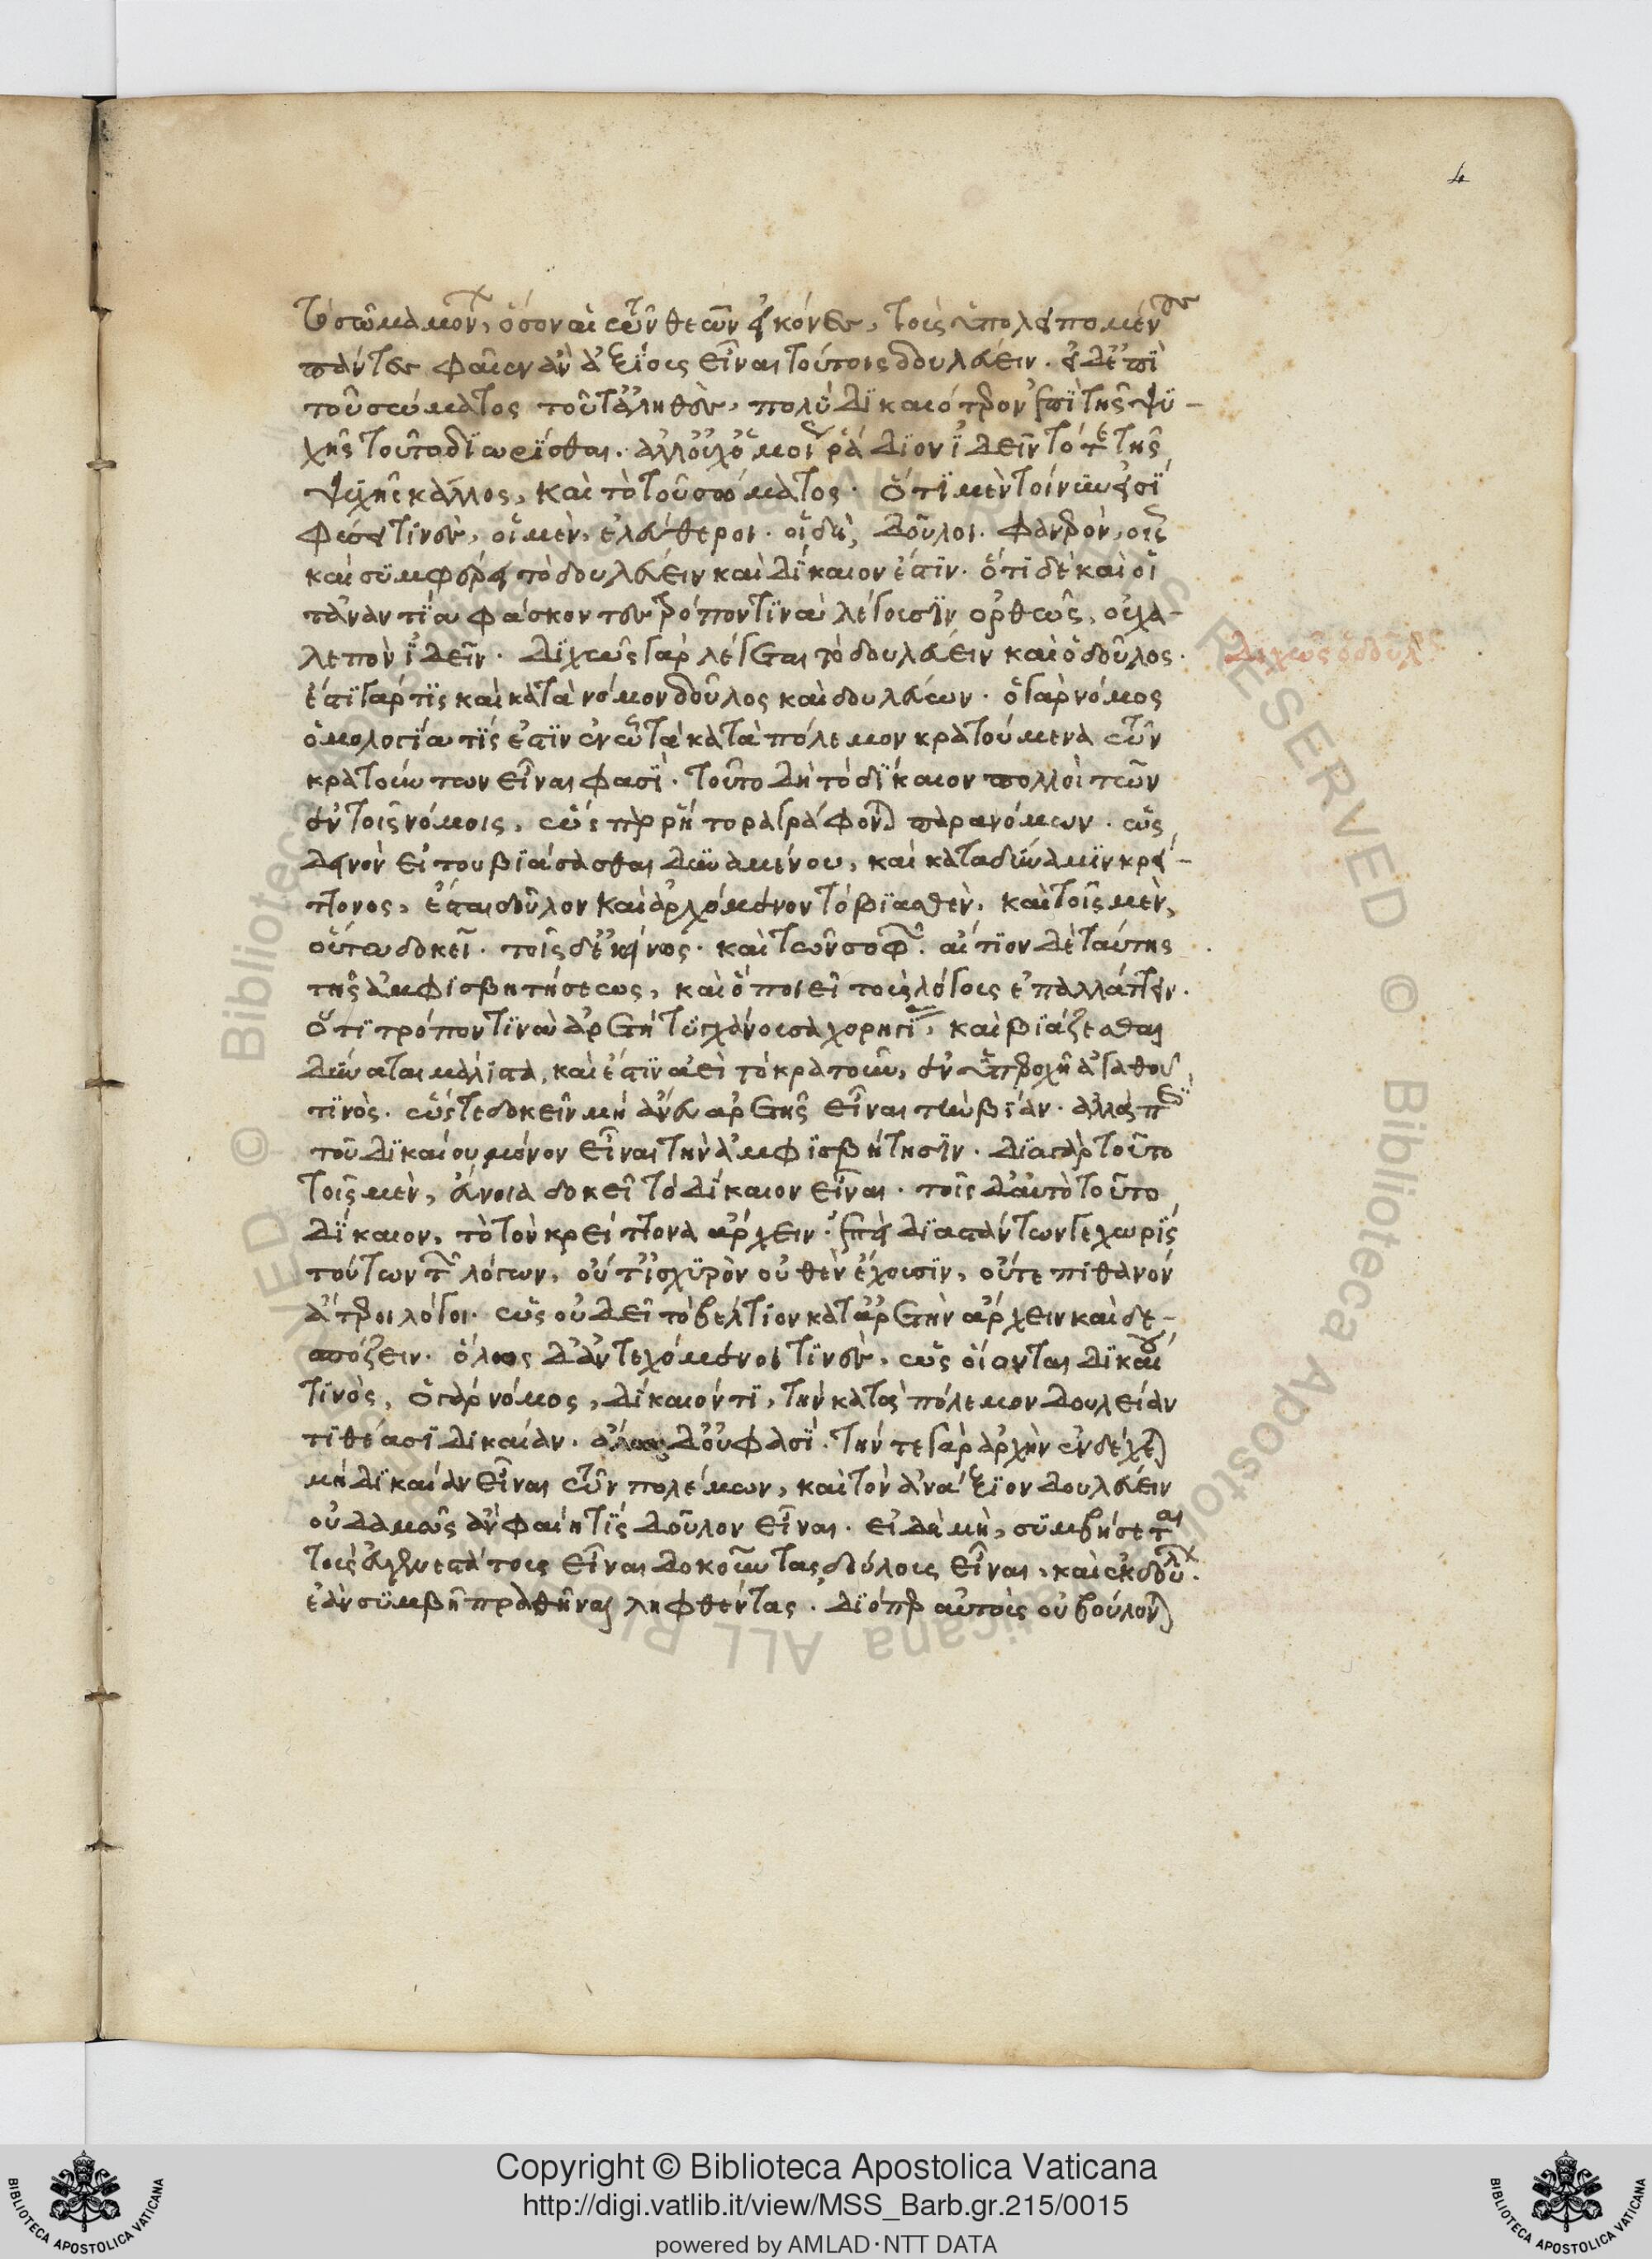 4
τὸ σῶμα μόνον, ὅσον αἱ τῶν θεῶν εἰκόνες, τοὺς ὑπολειπομένους
πάντες φαῖεν ἂν ἀξίους εἶναι τούτοις δουλεύειν. εἰ δ' ἐπὶ
τοῦ σώματος τοῦτ' ἀληθὲς, πολὺ δικαιότερον ἐπὶ τῆς ψυ-
χῆς τοῦτο διωρίσθαι. ἀλλ' οὐχ ὁμοίως ῥάδιον ἰδεῖν τό τε τῆς
ψυχῆς κάλλος, καὶ τὸ τοῦ σώματος. ὅτι μὲν τοίνυν εἰσὶ
φύσει τινὲς, οἱ μὲν, ἐλεύθεροι. οἱ δὲ, δοῦλοι. φανερὸν, οἷς
καὶ συμφέρει τὸ δουλεύειν καὶ δίκαιον ἐστιν. ὅτι δὲ καὶ οἱ
τἀναντία φάσκοντες τρόπον τινὰ λέγουσιν ὀρθῶς, οὐ χα-
λεπὸν ἰδεῖν. διχῶς γὰρ λέγεται τὸ δουλεύειν καὶ ὁ δοῦλος.
διχῶς ὁ δοῦλος
ἔστι γάρ τις καὶ κατὰ νόμον δοῦλος καὶ δουλεύων. ὁ γὰρ νόμος
ὁμολογία τίς ἐστιν ἐν ᾧ τὰ κατὰ πόλεμον κρατούμενα τῶν
κρατούντων εἶναι φασί. τοῦτο δὴ τὸ δίκαιον πολλοὶ τῶν
ἐν τοῖς νόμοις, ὥσπερ ῥήτορα γράφονται παρανόμων. ὡς
δεινὸν εἰ τοῦ βιάσασθαι δυναμένου, καὶ κατὰ δύναμιν κρεί-
ττονος, ἔσται δοῦλον καὶ ἀρχόμενον τὸ βιασθὲν. καὶ τοῖς μὲν,
οὕτω δοκεῖ. τοῖς δ' ἐκείνως. καὶ τῶν σοφῶν. αἴτιον δὲ ταύτης
τῆς ἀμφισβητήσεως, καὶ ὃ ποιεῖ τοὺς λόγους ἐπαλλάττειν.
ὅτι τρόπον τινὰ ἀρετὴ τυγχάνουσα χορηγίας, καὶ βιάζεσθαι
δύναται μάλιστα, καὶ ἔστιν ἀεὶ τὸ κρατοῦν, ἐν ὑπεροχῇ ἀγαθοῦ
τινὸς. ὥστε δοκεῖν μὴ ἄνευ ἀρετῆς εἶναι τὴν βίαν. ἀλλὰ περὶ
τοῦ δικαίου μόνον εἶναι τὴν ἀμφισβήτησιν. διὰ γὰρ τοῦτο
τοῖς μὲν, εὔνοια δοκεῖ τὸ δίκαιον εἶναι. τοῖς δ' αὐτὸ τοῦτο
δίκαιον, τὸ τὸν κρείττονα ἄρχειν. ἐπεὶ διαστάντων γε χωρὶς
τούτων τῶν λόγων, οὔτ' ἰσχυρὸν οὐθὲν ἔχουσιν, οὔτε πιθανὸν
ἅτεροι λόγοι. ὡς οὐ δεῖ τὸ βέλτιον κατ' ἀρετὴν ἄρχειν καὶ δε-
σπόζειν. ὅλως δ' ἀντεχόμενοι τινὲς, ὡς οἴονται δικαίου
τινὸς, ὁ γὰρ νόμος, δίκαιόν τι, τὴν κατὰ πόλεμον δουλείαν
τιθέασι δικαίαν. ἅμα δ' οὔ φασί. τήν τε γὰρ ἀρχὴν ἐνδέχεται
μὴ δικαίαν εἶναι τῶν πολέμων, καὶ τὸν ἀνάξιον δουλεύειν
οὐδαμῶς ἂν φαίη τὶς δοῦλον εἶναι. εἰ δὲ μὴ, συμβήσεται
τοὺς εὐγενεστάτους εἶναι δοκοῦντας δούλους εἶναι, καὶ ἐκ δούλων.
ἐὰν συμβῇ πραθῆναι ληφθέντας. διόπερ αὐτοὺς οὐ βούλονται
Copyright © Biblioteca Apostolica Vaticana
http://digi.vatlib.it/view/MSS_Barb.gr.215/0015
powered by AMLAD·NTT DATA
BIBLIOTECA APOSTOLICA VATICANA
BIBLIOTECA APOSTOLICA VATICANA